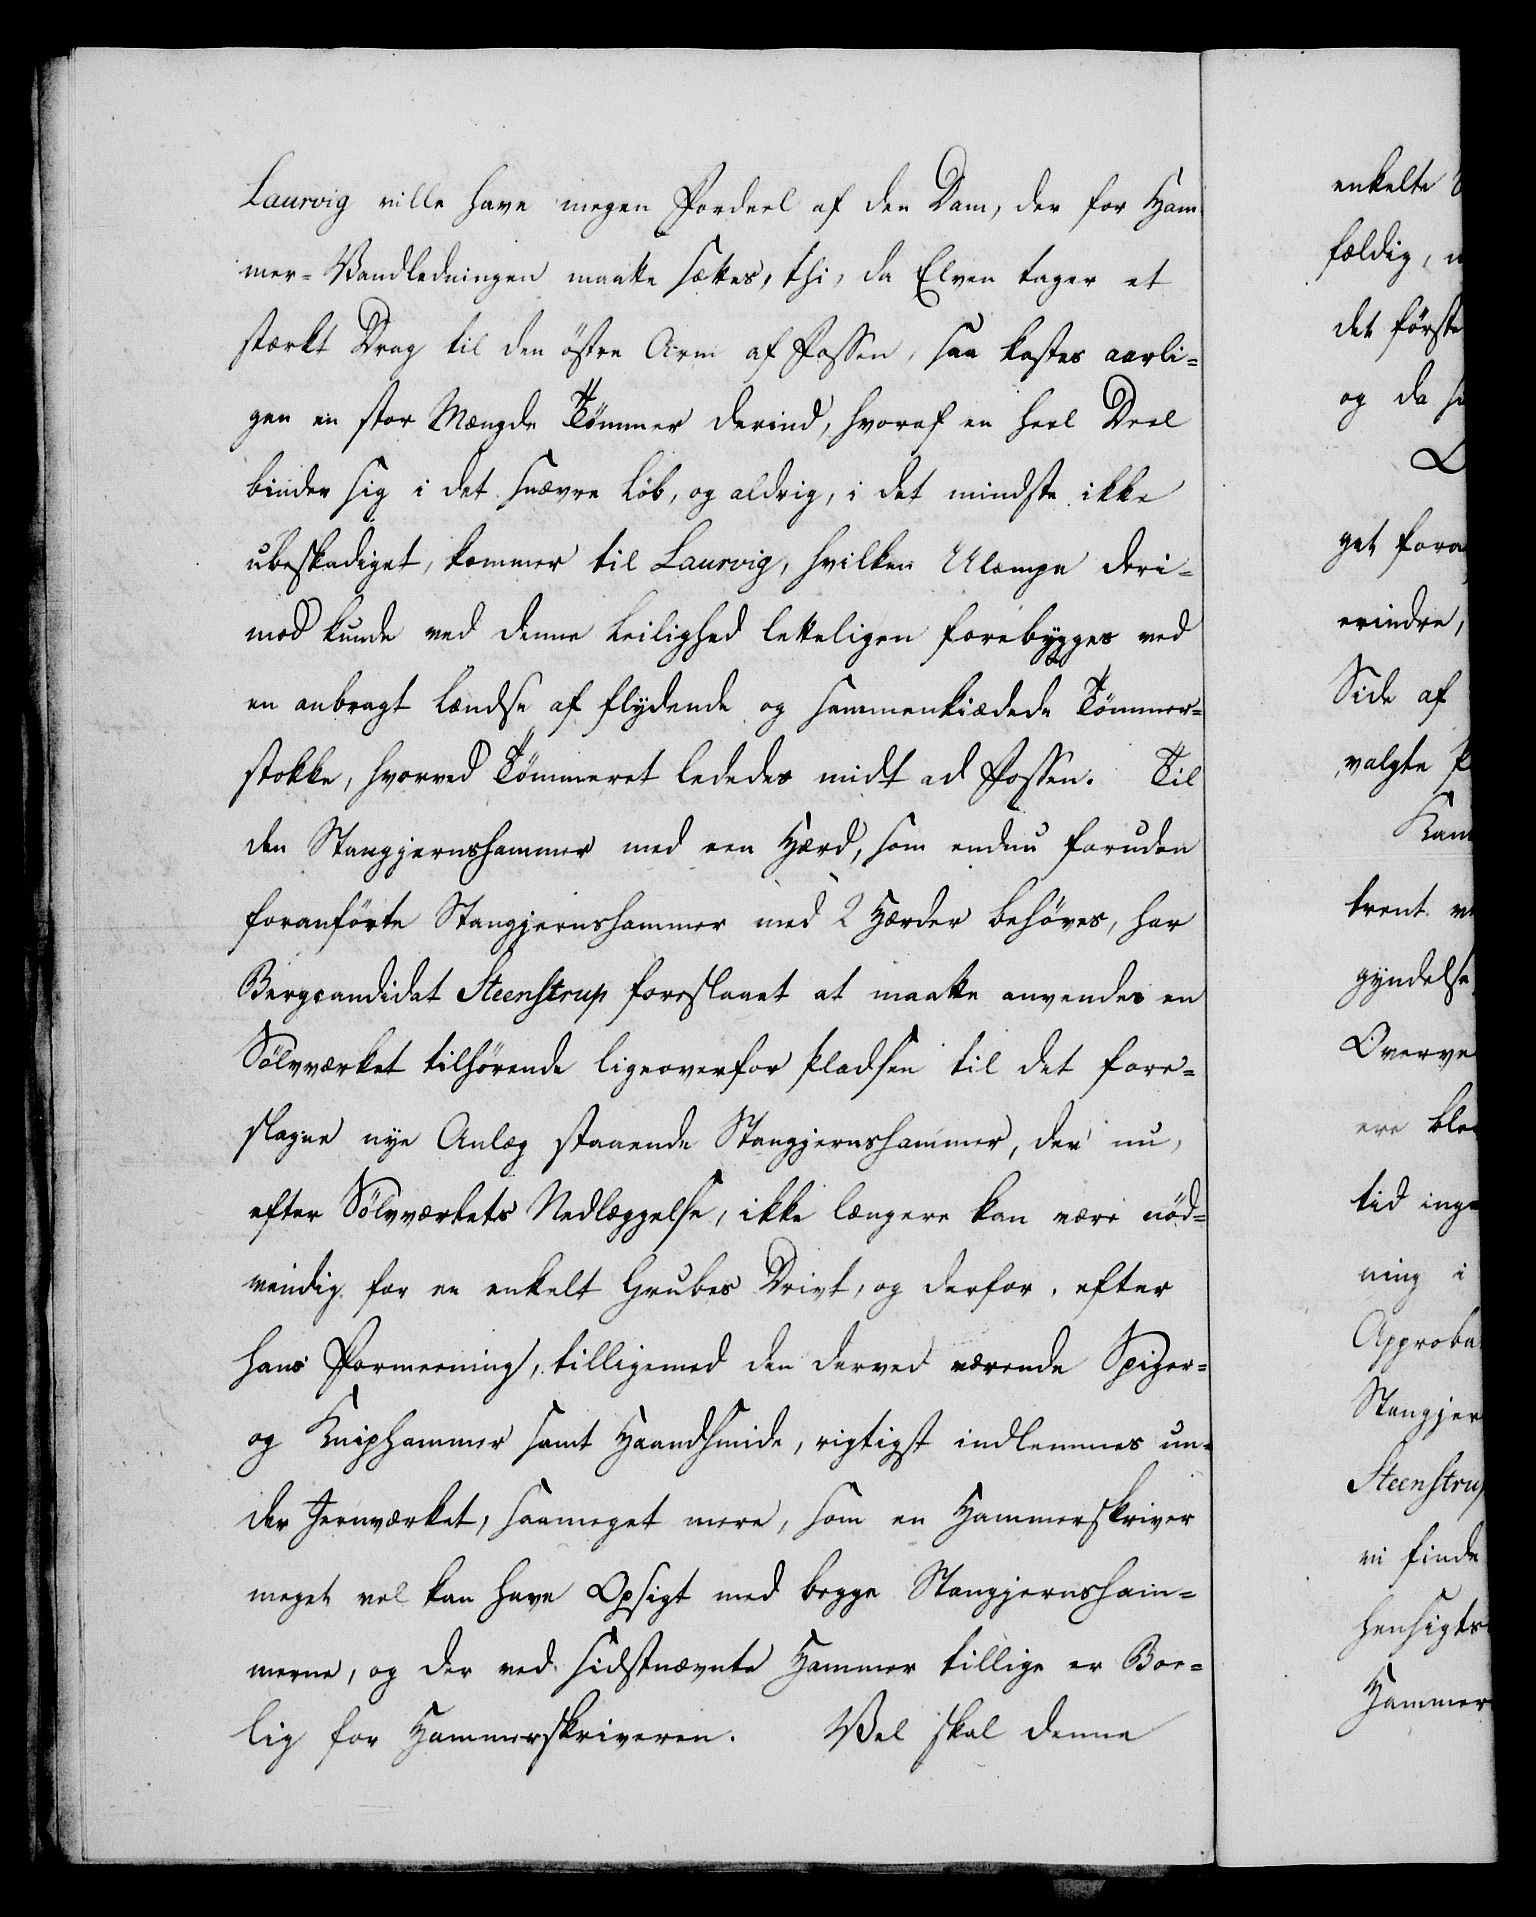 Laurvig ville have megen Fordeel af den Dam, der for Ham
mer= Vandledningen maatte sættes, thi, da Elven tager et
stærkt Drag til den östre Arm af Fossen, saa kastes aarli=
gen en stor Mængde Tömmer derind, hvoraf en heel Deel
binder sig i det snævre Löb, og aldrig, i det mindste ikke
ubeskadiget, kommer til Laurvig, hvilken Ulempe deri=
mod kunde ved denne Leilighed letteligen forebygges ved
en anbragt Lændse af flydende og sammenkiædede Tömmer=
stokke, hvorved Tömmeret lededes midt ad Fossen. Til
den Stangjernshammer med een Hærd, som endnu foruden
foranförte Stangjernshammer med 2 Hærder behöves, har
Bergcandidat Steenstrup foreslaaet at maatte anvendes en
Sölvværket tilhörende ligeoverfor Pladsen til det fore=
slagne nye Anlæg staaende Stangjernshammer, der nu,
efter Sölvværkets Nedlæggelse, ikke længere kan være nöd=
vendig for en enkelt Grubes Drivt, og derfor, efter
hans Formeening, tilligemed den derved værende Spiger=
og Kniphammer samt Haandsmide, rigtigst indlemmes un=
der Jernværket, saameget mere, som en Hammerskriver
meget vel kan have Opsigt med begge Stangjernsham=
merne, og der ved sidstnævnte Hammer tillige er Boe=
lig for Hammerskriveren. Vel skal denne
enkelte
fældig,
det förste
og da
get
erindre,
Side af
valgte
trent
gyndelse
ere
tid
ning i
Steenstrup
vi finde
Hammer